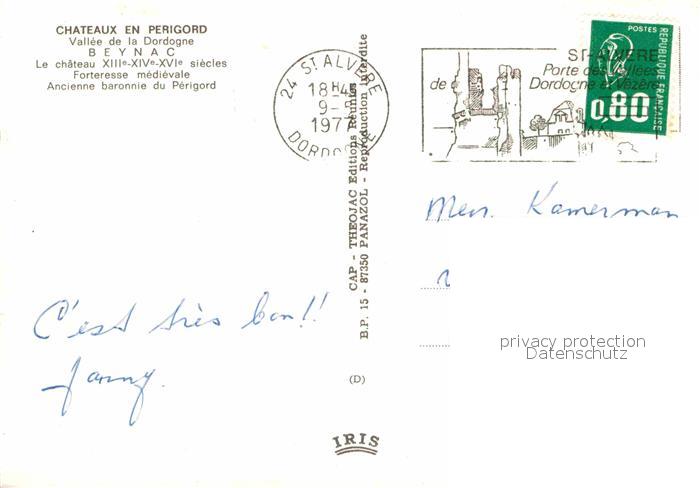 CHATEAUX EN PERIGORD
Vallée de la Dordogne
BEYNAC
Le château XIIIᵉ-XIVᵉ-XVIᵉ siècles
Forteresse médiévale
Ancienne baronnie du Périgord
24 St ALVERE
18 H 45
9-
1977
DORDOGNE
ST-ALVERE
Porte des Vallées
de Dordogne et Vézère
POSTES
REPUBLIQUE FRANÇAISE
0,80
CAP - THEOJAC Editions Réunies
B.P. 15 - 87350 PANAZOL - Reproduction interdite
Mevr. Kamerman
C'est très bon!!
privacy protection
Datenschutz
(D)
IRIS